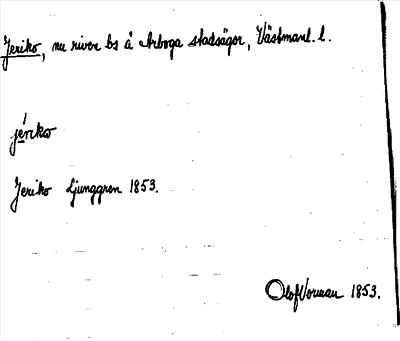 Jeriko, nu riven bs å Arboga stadsägor, Västmanl. l.
jèrikω
Jeriko Ljunggren 1853.
Olof Vorman 1853.